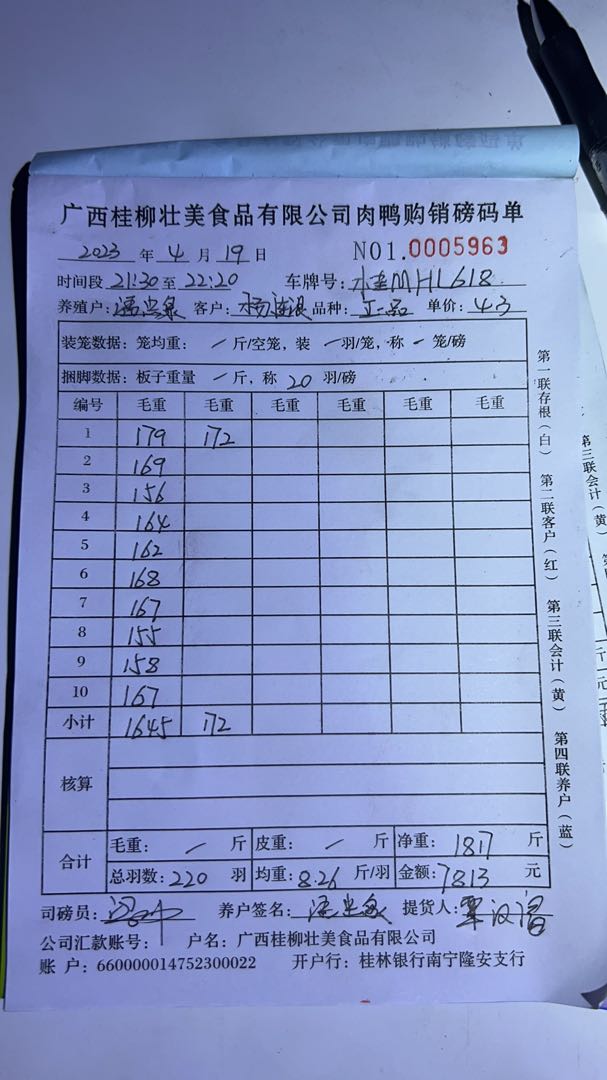 广西桂柳壮美食品有限公司肉鸭购销磅码单
2023 年 4 月 19 日 NO1.0005963
时间段 21:30 至 22:20 车牌号: 桂MHL618
养殖户: 客户: 品种: 正品 单价: 4.3
装笼数据: 笼均重: / 斤/空笼, 装 / 羽/笼, 称 / 笼/磅
捆脚数据: 板子重量 / 斤, 称 20 羽/磅
编号 毛重 毛重 毛重 毛重 毛重 毛重
1 179 172
2 169
3 156
4 164
5 162
6 168
7 167
8 155
9 158
10 167
小计 1645 172
核算
合计 毛重: / 斤 皮重: / 斤 净重: 1817 斤
总羽数: 220 羽 均重: 8.26 斤/羽 金额: 7813 元
司磅员: 养户签名: 提货人:
公司汇款账号: 户名: 广西桂柳壮美食品有限公司
账 户: 660000014752300022 开户行: 桂林银行南宁隆安支行
第一联存根(白) 第二联客户(红) 第三联会计(黄) 第四联养户(蓝)
第三联会计(黄)
斤
元